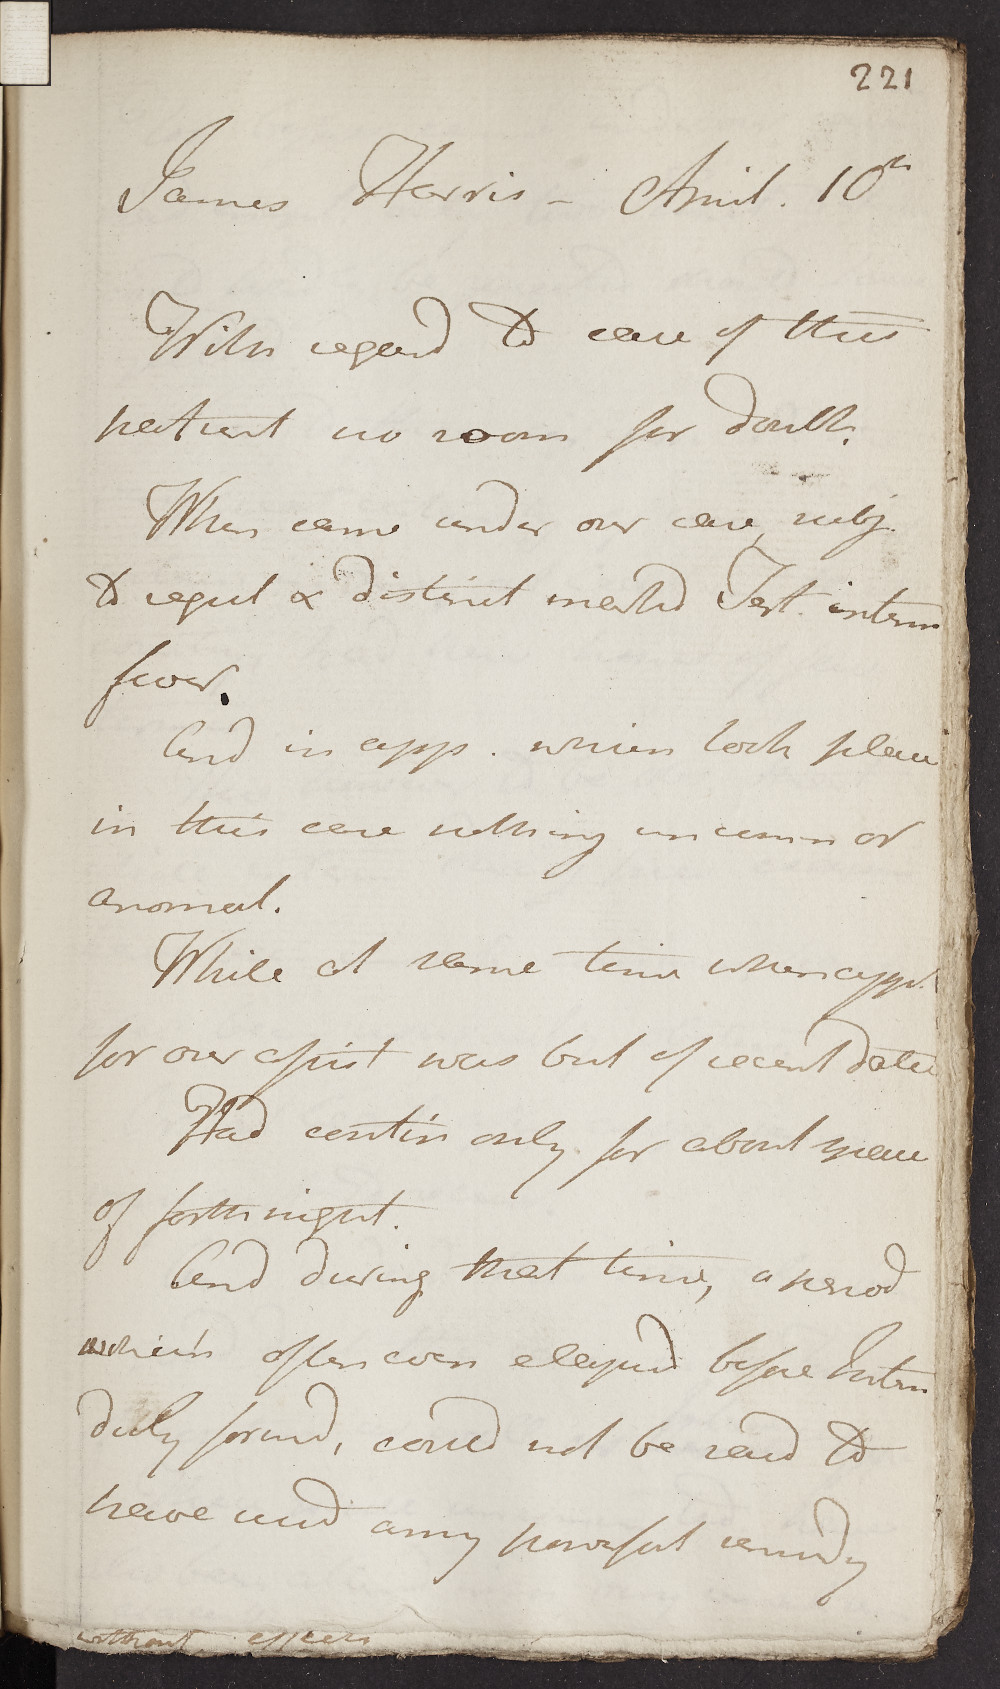 221
James Harris - April. 10th
With regard to case of this
patient no room for doubt.
When came under our care, subj.
to regul & distinct marked Tert. interm
fever.
And in app. which took place
in this case nothing uncomm or
anomal.
While at same time when appl.
for our assist was but of recent date
Had contin only for about space
of forthnight.
And during that time, a period
which often even elapsed before Interm
duly formd, could not be said to
have used any powerful remedy
without effect